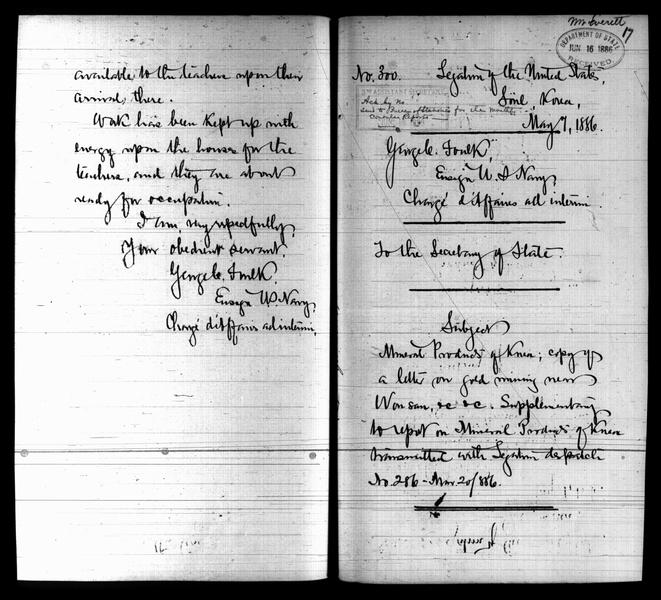 available to the teachers upon their
arrival there.
Work has been kept up with
energy upon the houses for the
teachers, and they are about
ready for occupation.
I am, very respectfully,
Your obedient servant,
George C. Foulk,
Ensign U.S. Navy,
Chargé d'Affaires ad interim.
Mr Everett
17
DEPARTMENT OF STATE
JUN 16 1886
RECEIVED
No. 300.
Legation of the United States,
Söul, Korea,
May 7, 1886.
George C. Foulk,
Ensign U.S. Navy,
Chargé d'Affaires ad interim.
To the Secretary of State.
Subject
Mineral Products of Korea; copy of
a letter on gold mining near
Wonsan, &c &c. Supplementing
to report on Mineral Products of Korea
transmitted with Legation despatch
No. 286 - Mar. 20/886.